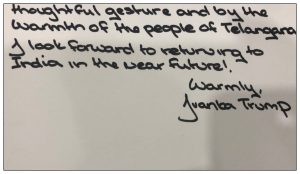 thoughtful gesture and by the
warmth of the people of Telangana
I look forward to returning to
India in the near future!
Warmly,
Ivanka Trump